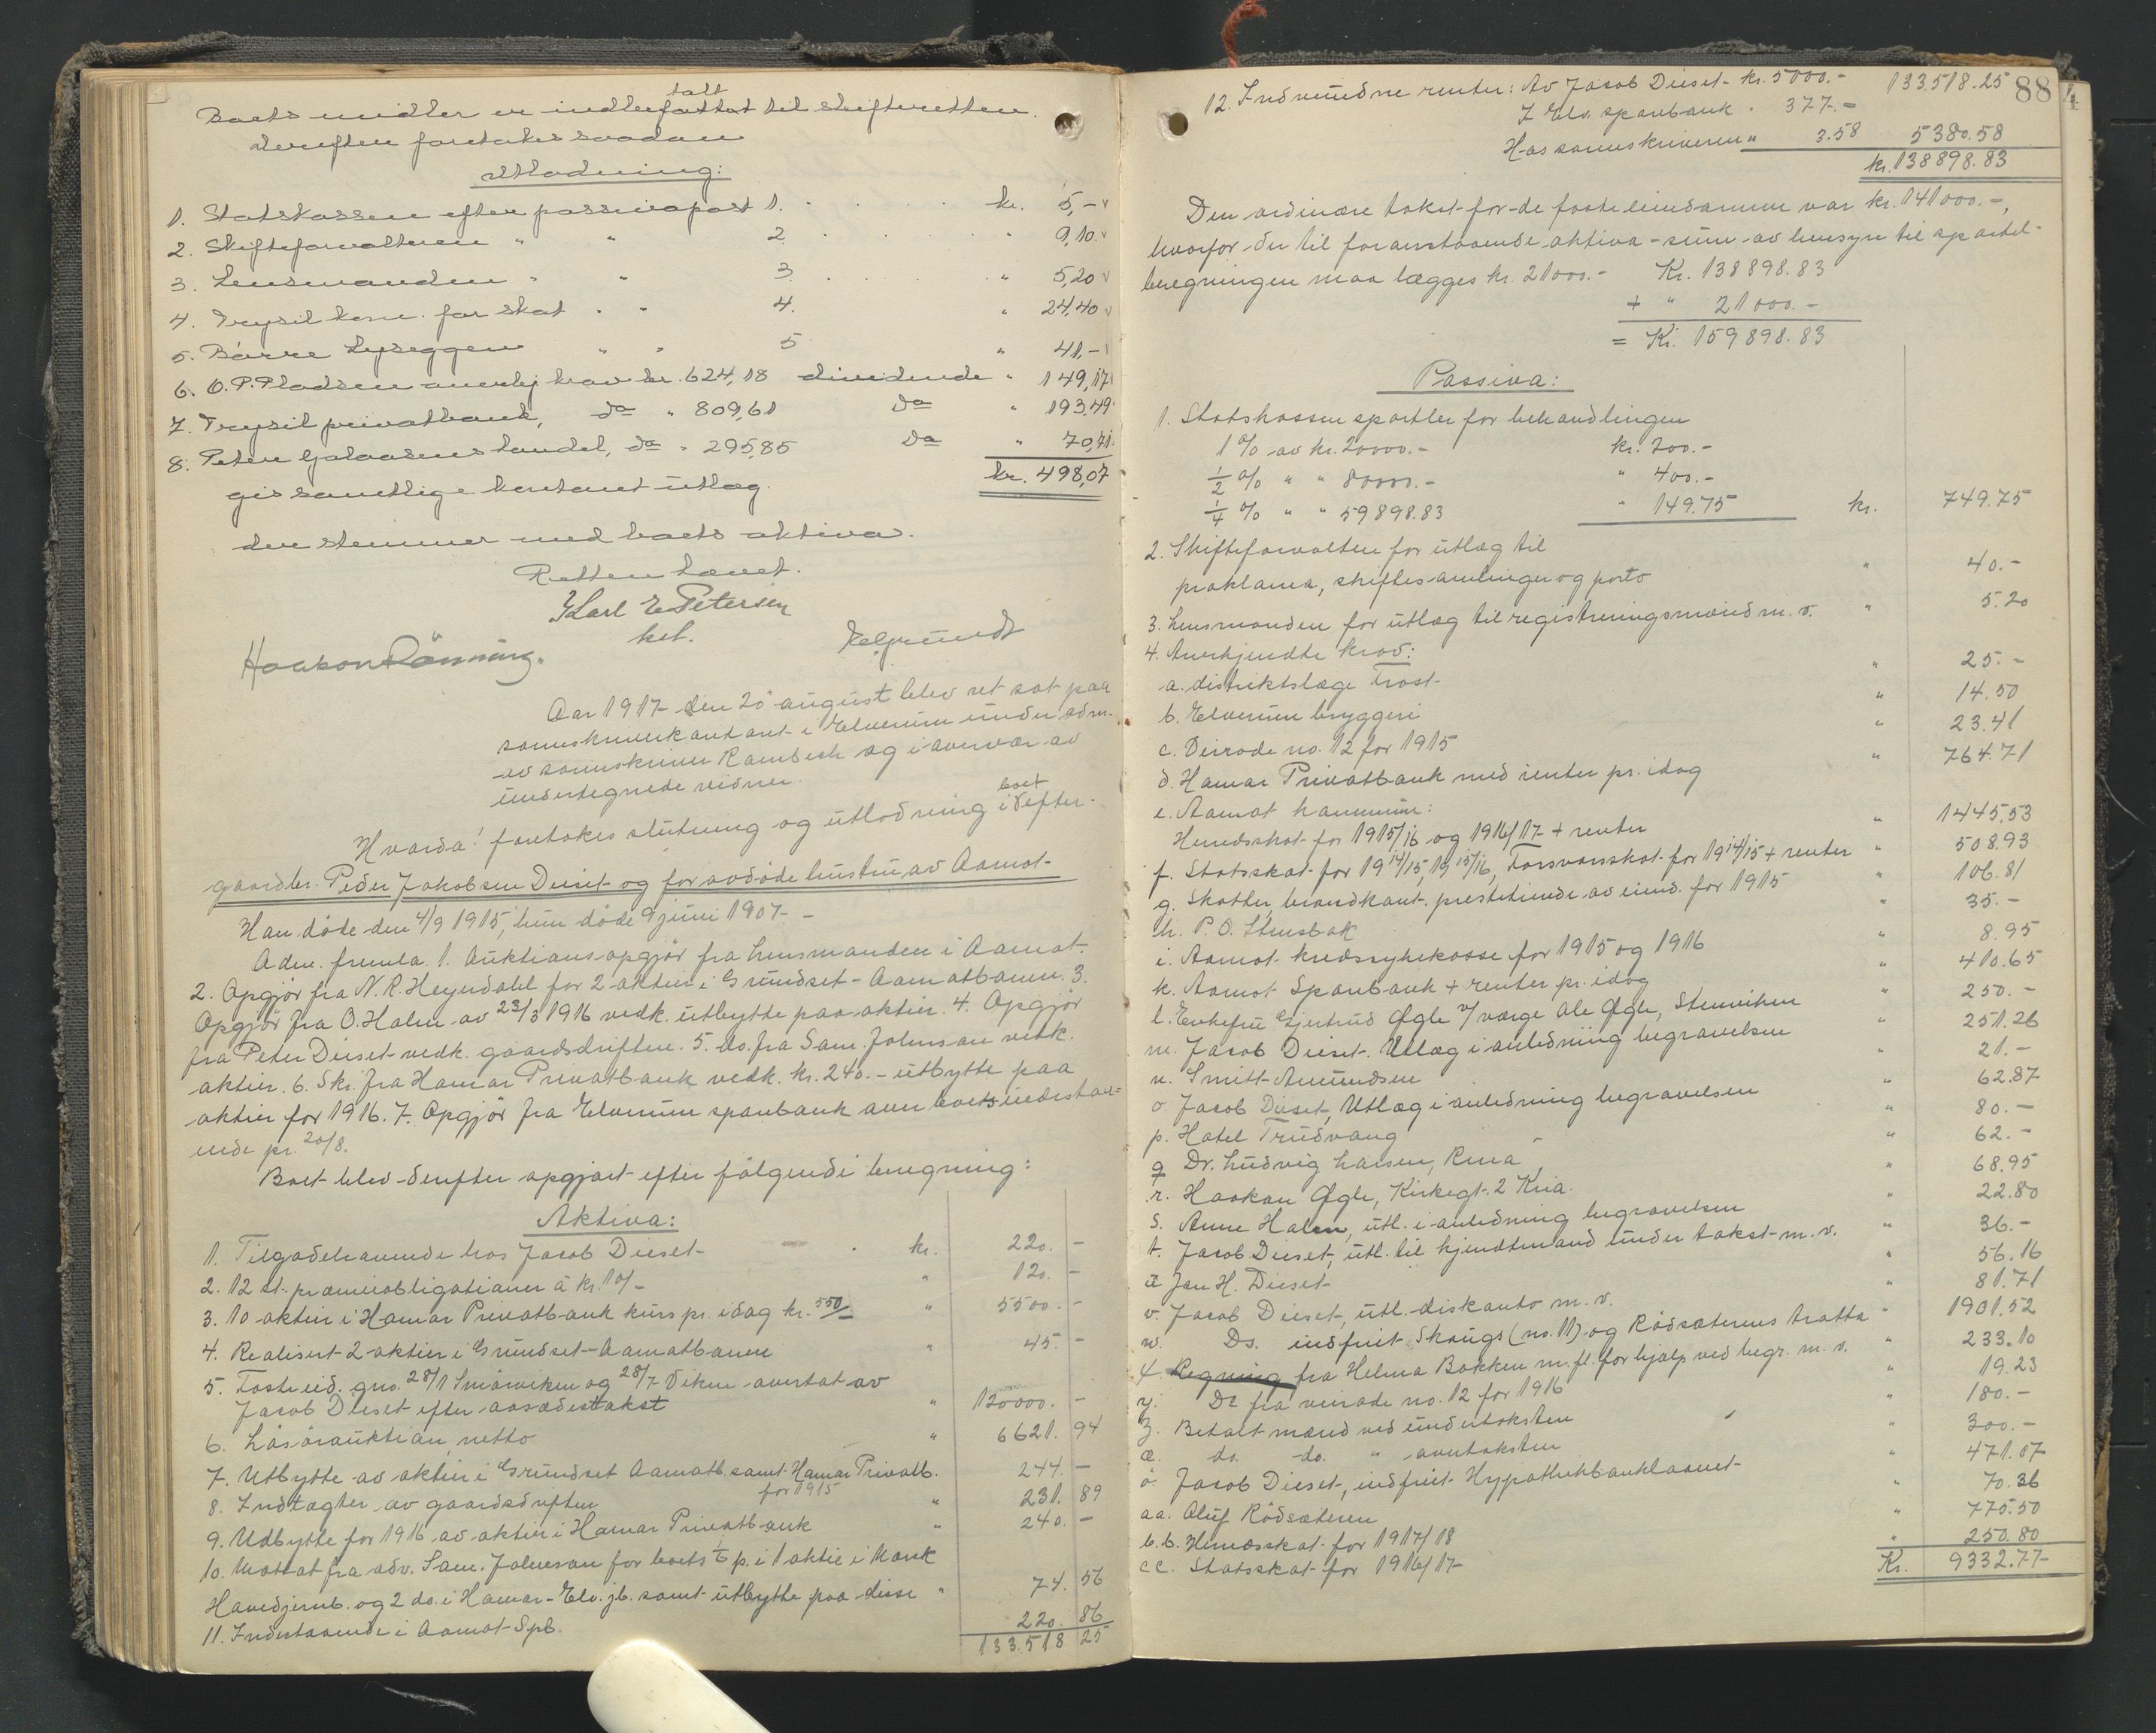 talt
Boets midler er indbefattet til skifteretten.
derefter foretokes saadan
Utlodning:
1. Statskassen efter passivapost 1. kr. 5,-
2. Skifteforvalteren " " 2. " 9,10
3. Lensmanden " " 3. " 5,20
4. Trysil kom. for skat " " 4. " 24,40
5. Børre Lyseggen " " 5 " 41,-
6. O. P. Pladsen anerkj krav kr. 624,18 dividende " 149,17
7. Trysil privatbank, do " 809,61 do " 193,49
8. Peter Galaasens handel, do " 295,85 do " 70,71
kr. 498,07
gis samtlige kontant utlæg
der stemmer med boets aktiva.
Retten hævet.
Karl E Petersen
kst.
Haakon Rønning.
Aar 1917 den 20 august blev ret sat paa
sorenskriverkontoret i Elverum under adm.
av sorenskriver Rambech og i overvær av
undertegnede vidner.
Hvorda! foretokes slutning og utlodning i boet efter
gaardbr. Peder Jakobsen Deset og før avdøde hustru av Aamot
Han døde den 4/9 1915, hun døde 9 juni 1907.-
Adm. fremla. 1. Auktionsopgjør fra lensmanden i Aamot.
2. Opgjør fra N. R. Heyerdahl for 2 aktier i Grundset-Aamotbanen. 3.
Opgjør fra O. Halen av 23/3 1916 vedk. utbytte paa aktier. 4. Opgjør
fra Peter Deset vedk. gaardsdriften. 5. do. fra Sam. Johnson vedk.
aktier. 6. Skr. fra Hamar Privatbank vedk. kr. 240.- utbytte paa
aktier for 1916. 7. Opgjør fra Elverum sparebank over boets indestaa-
ende pr. 20/8.
Boet blev derefter opgjort efter følgende beregning:
Aktiva:
1. Tilgodehavende hos Jacob Deset kr. 220. -
2. 12 st. præmieobligationer à kr. 10/- " 120. -
3. 10 aktier i Hamar Privatbank kurs pr. idag kr. 550/- " 5500. -
4. Realisert 2 aktier i Grundset-Aamotbanen " 45. -
5. Faste eid. gno. 28/1 Smørviken og 28/7 Viken overtat av
Jacob Deset efter aasædestakst " 120000. -
6. Løsøreauktion, netto " 6621. 94
7. Utbytte av aktier i Grundset Aamotb. samt Hamar Privatb.
for 1915 244. -
8. Indtægter av gaardsdriften " 231. 89
9. Udbytte for 1916 av aktier i Hamar Privatbank " 240. -
10. Mottat fra adv. Sam. Johnson for boets 1/6 p. i 1 aktie i Norsk
Hovedjernb. og 2 do. i Hamar-Elv. jb. samt utbytte paa disse " 74. 56
11. Indestaaende i Aamot Spb. 220. 86
133.518 25
884
12. Indvundne renter: Av Jacob Deset kr. 5000.- 133.518.25
I Elv. sparebank " 377.-
Hos sorenskriveren " 3.58 5380.58
kr. 138898.83
Den ordinære takst for de faste eiendommer var kr. 141000.-,
hvorfor der til foranstaaende aktiva-sum av hensyn til sportel-
beregningen maa lægges kr. 21000.- Kr. 138898.83
+ " 21000.-
= Kr. 159898.83
Passiva:
1. Statskassen sportler for behandlingen
1 % av kr. 20000.- kr. 200.-
1/2 % " " 80000.- " 400.-
1/4 % " " 59898.83 " 149.75 kr. 749.75
2. Skifteforvalter for utlæg til
proklama, skiftesamlinger og porto " 40.-
3. Lensmanden for utlæg til registreringsmænd m. v. " 5.20
4. Anerkjendte krav:
a. distriktslæge Trost " 25.-
b. Elverum bryggeri " 14.50
c. Veirode no. 12 for 1915 " 23.41
d. Hamar Privatbank med renter pr. idag " 764.71
e. Aamot kommune:
Herredsskat for 1915/16 og 1916/17 + renter " 1445,53
f. Statsskat for 1914/15, 1915/16, Forsvarsskat for 1914/15 + renter " 508.93
g. Skatter, brandkont. prestetiende av eiend. for 1915 " 106.81
h. P. O. Stensbak " 35.-
i. Aamot kredssykekasse for 1915 og 1916 " 8.95
k. Aamot Sparebank + renter pr. idag " 410.65
l. Enkefru Gjertrud Øgle v/ værge Ole Øgle, Stenviken " 250.-
m. Jacob Deset. Utlæg i anledning begravelsen " 251.26
n. Smitt-Amundsen " 21.-
o. Jacob Deset, Utlæg i anledning begravelsen " 62.87
p. Hotel Trudvang " 80.-
q. Dr. Ludvig Larsen, Rena " 62.-
r. Haakon Øgle, Kirkegt. 2 Kria. " 68.95
s. Anne Halen, utl. i anledning begravelsen " 22.80
t. Jacob Deset, utl. til kjendtmand under takst m. v. " 36.-
u Jon H. Deset " 56.16
v. Jacob Deset, utl. diskonto m. v. " 81.71
w. Do. indfriet Skougs (no. 11) og Rødsæterens tratta " 1901.52
x Regning fra Helma Bakken m. fl. for hjælp ved begr. m. v. " 233.10
y. Do fra veirode no. 12 for 1916 " 19.23
z. Betalt mænd ved undertaksten " 180.-
æ. do. do. " overtaksten " 300.-
ø. Jacob Deset, indfriet Hypothekbanklaanet " 471.07
aa. Oluf Rødsæteren " 70.36
b.b. Herredsskat for 1917/18 " 775.50
cc. Statsskat for 1916/17 " 250.80
Kr. 9332.77